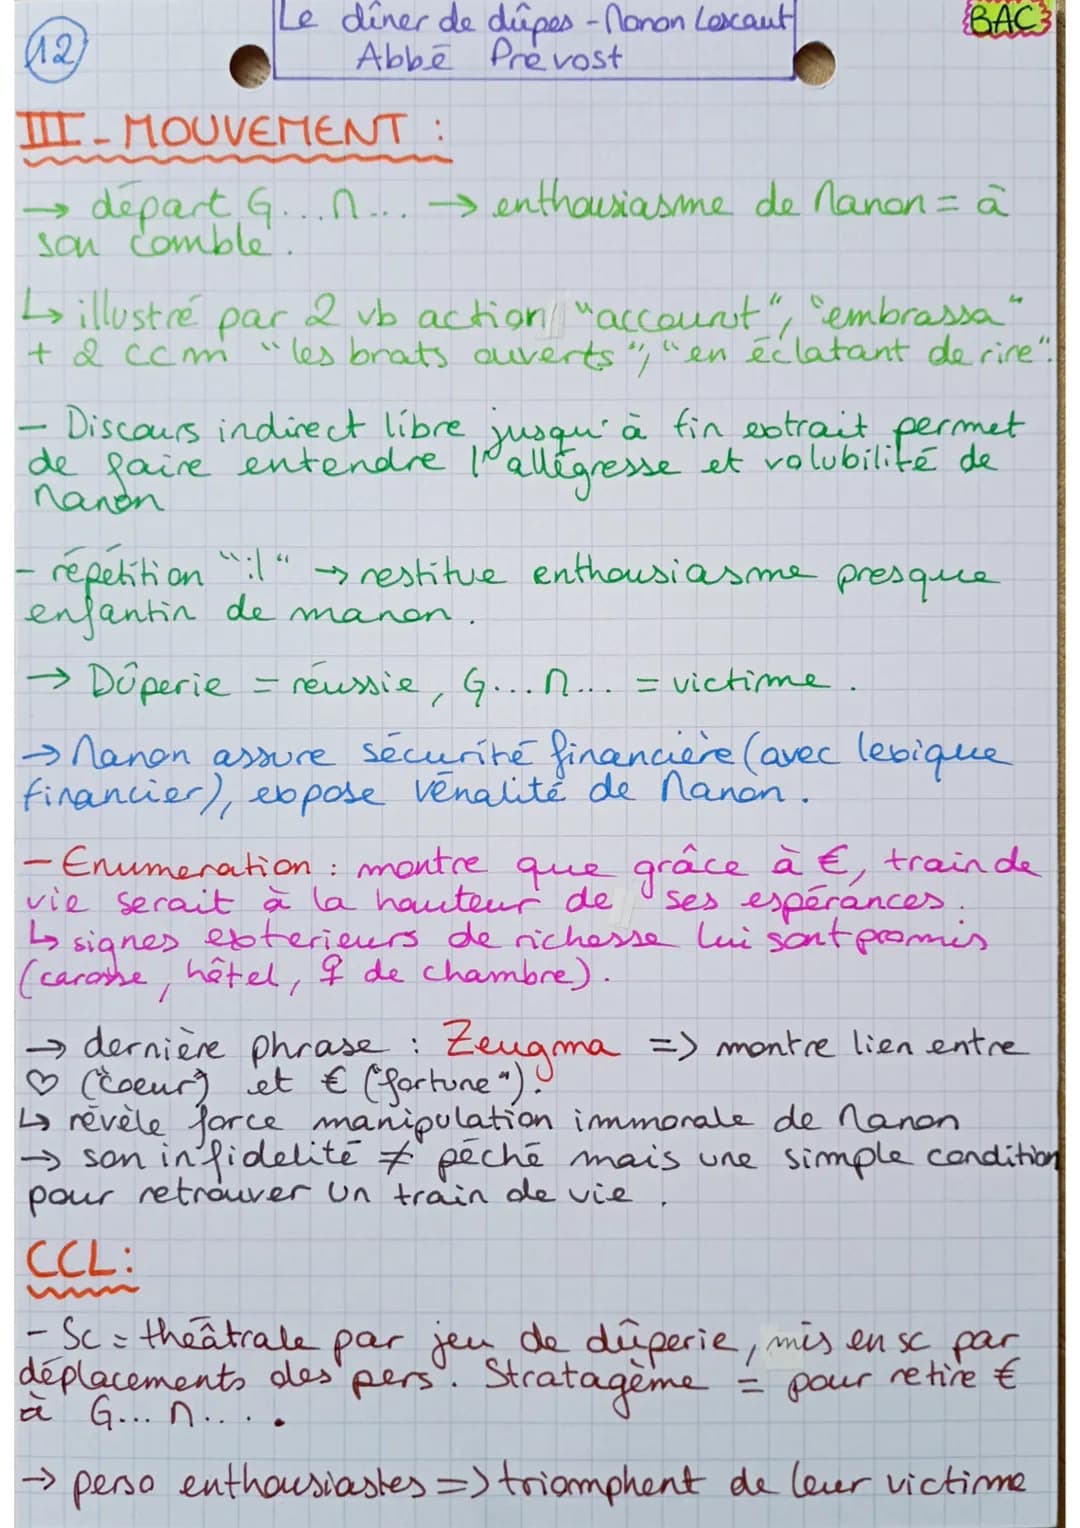 12
Le dîner de dûpes - Manon Lescaut
Abbé Prévost
BAC
III - MOUVEMENT :
→ départ G...M... → enthousiasme de Manon = à
son comble.
↳ illustré par 2 vb action "accourut", "embrassa"
+ 2 ccm "les brats ouverts", "en éclatant de rire".
- Discours indirect libre jusqu'à fin extrait permet
de faire entendre l'allégresse et volubilité de
Manon
- répétition "il" → restitue enthousiasme presque
enfantin de manon.
→ Dûperie = réussie, G...M... = victime.
→ Manon assure sécurité financière (avec lexique
financier), expose vénalité de Manon.
- Enumeration : montre que grâce à €, train de
vie serait à la hauteur de ses espérances.
↳ signes exterieurs de richesse lui sont promis
(carosse, hôtel, ♀ de chambre).
→ dernière phrase : Zeugma => montre lien entre
♡ ("coeur") et € ("fortune").
↳ révèle force manipulation immorale de Manon
→ son infidelité ≠ péché mais une simple condition
pour retrouver un train de vie.
CCL:
- Sc = théâtrale par jeu de dûperie, mis en sc par
déplacements des pers. Stratagème = pour retire €
à G...M....
→ perso enthousiastes => triomphent de leur victime